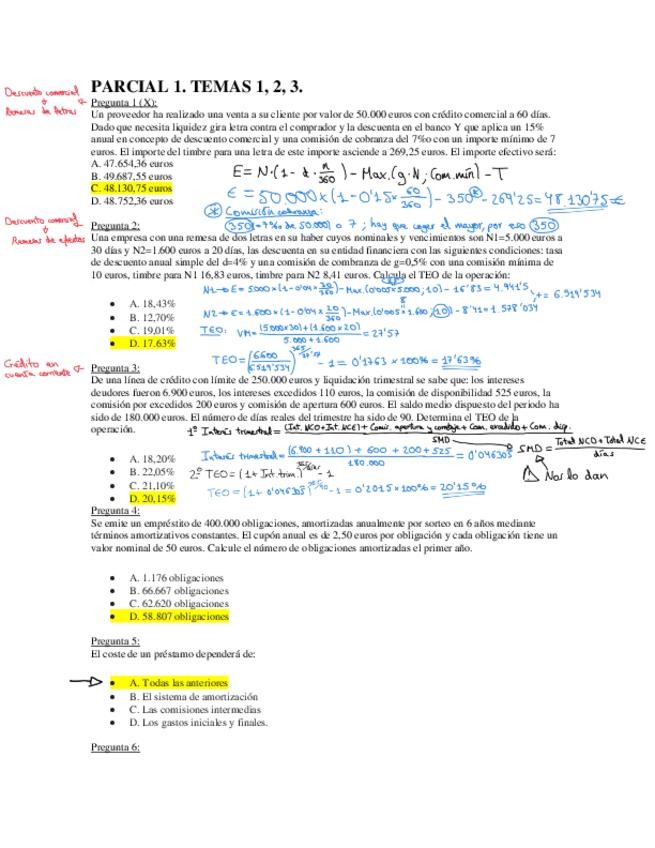 PARCIAL 1. TEMAS 1, 2, 3.
Descuento comercial
Remesas de letras
Pregunta 1 (X):
Un proveedor ha realizado una venta a su cliente por valor de 50.000 euros con crédito comercial a 60 días.
Dado que necesita liquidez gira letra contra el comprador y la descuenta en el banco Y que aplica un 15%
anual en concepto de descuento comercial y una comisión de cobranza del 7‰ con un importe mínimo de 7
euros. El importe del timbre para una letra de este importe asciende a 269,25 euros. El importe efectivo será:
A. 47.654,36 euros
B. 49.687,55 euros
C. 48.130,75 euros
D. 48.752,36 euros
E = N·(1 - d · n/360) - Max.(g·N; Com.min) - T
E = 50.000 x (1 - 0'15 x 60/360) - 350 - 269'25 = 48.130'75 €
Comisión cobranza:
350 (=7‰ de 50.000) o 7; hay que coger el mayor, por eso 350
Descuento comercial
Remesas de efectos
Pregunta 2:
Una empresa con una remesa de dos letras en su haber cuyos nominales y vencimientos son N1=5.000 euros a
30 días y N2=1.600 euros a 20 días, las descuenta en su entidad financiera con las siguientes condiciones: tasa
de descuento anual simple del d=4% y una comisión de combranza de g=0,5% con una comisión mínima de
10 euros, timbre para N1 16,83 euros, timbre para N2 8,41 euros. Calcula el TEO de la operación:
N1→ E = 5000 x (1 - 0'04 x 30/360) - Max.(0'005 x 5.000; 10) - 16'83 = 4.941'5
N2→ E = 1.600 x (1 - 0'04 x 20/360) - Max.(0'005 x 1.600; 10) - 8'41 = 1.578'034
+ = 6.519'534
A. 18,43%
B. 12,70%
C. 19,01%
D. 17.63%
TEO: VM = (5000x30)+(1.600x20) / 5.000+1.600 = 27'57
TEO = (6600/6.519'534)^365/27'57 - 1 = 0'1763 x 100% = 17'63%
Crédito en
cuenta corriente
Pregunta 3:
De una línea de crédito con límite de 250.000 euros y liquidación trimestral se sabe que: los intereses
deudores fueron 6.900 euros, los intereses excedidos 110 euros, la comisión de disponibilidad 525 euros, la
comisión por excedidos 200 euros y comisión de apertura 600 euros. El saldo medio dispuesto del periodo ha
sido de 180.000 euros. El número de días reales del trimestre ha sido de 90. Determina el TEO de la
operación.
1º Interés trimestral = (Int. NCO + Int. NCE) + Comis. apertura y corretaje + Com. excedido + Com. disp. / SMD
Interés trimestral = (6.900 + 110) + 600 + 200 + 525 / 180.000 = 0'046305
SMD = Total NCO + Total NCE / días
Nos lo dan
2º TEO = (1 + Int. trim.)^365/días - 1
TEO = (1 + 0'046305)^365/90 - 1 = 0'2015 x 100% = 20'15%
A. 18,20%
B. 22,05%
C. 21,10%
D. 20,15%
Pregunta 4:
Se emite un empréstito de 400.000 obligaciones, amortizadas anualmente por sorteo en 6 años mediante
términos amortizativos constantes. El cupón anual es de 2,50 euros por obligación y cada obligación tiene un
valor nominal de 50 euros. Calcule el número de obligaciones amortizadas el primer año.
A. 1.176 obligaciones
B. 66.667 obligaciones
C. 62.620 obligaciones
D. 58.807 obligaciones
Pregunta 5:
El coste de un préstamo dependerá de:
A. Todas las anteriores
B. El sistema de amortización
C. Las comisiones intermedias
D. Los gastos iniciales y finales.
Pregunta 6: